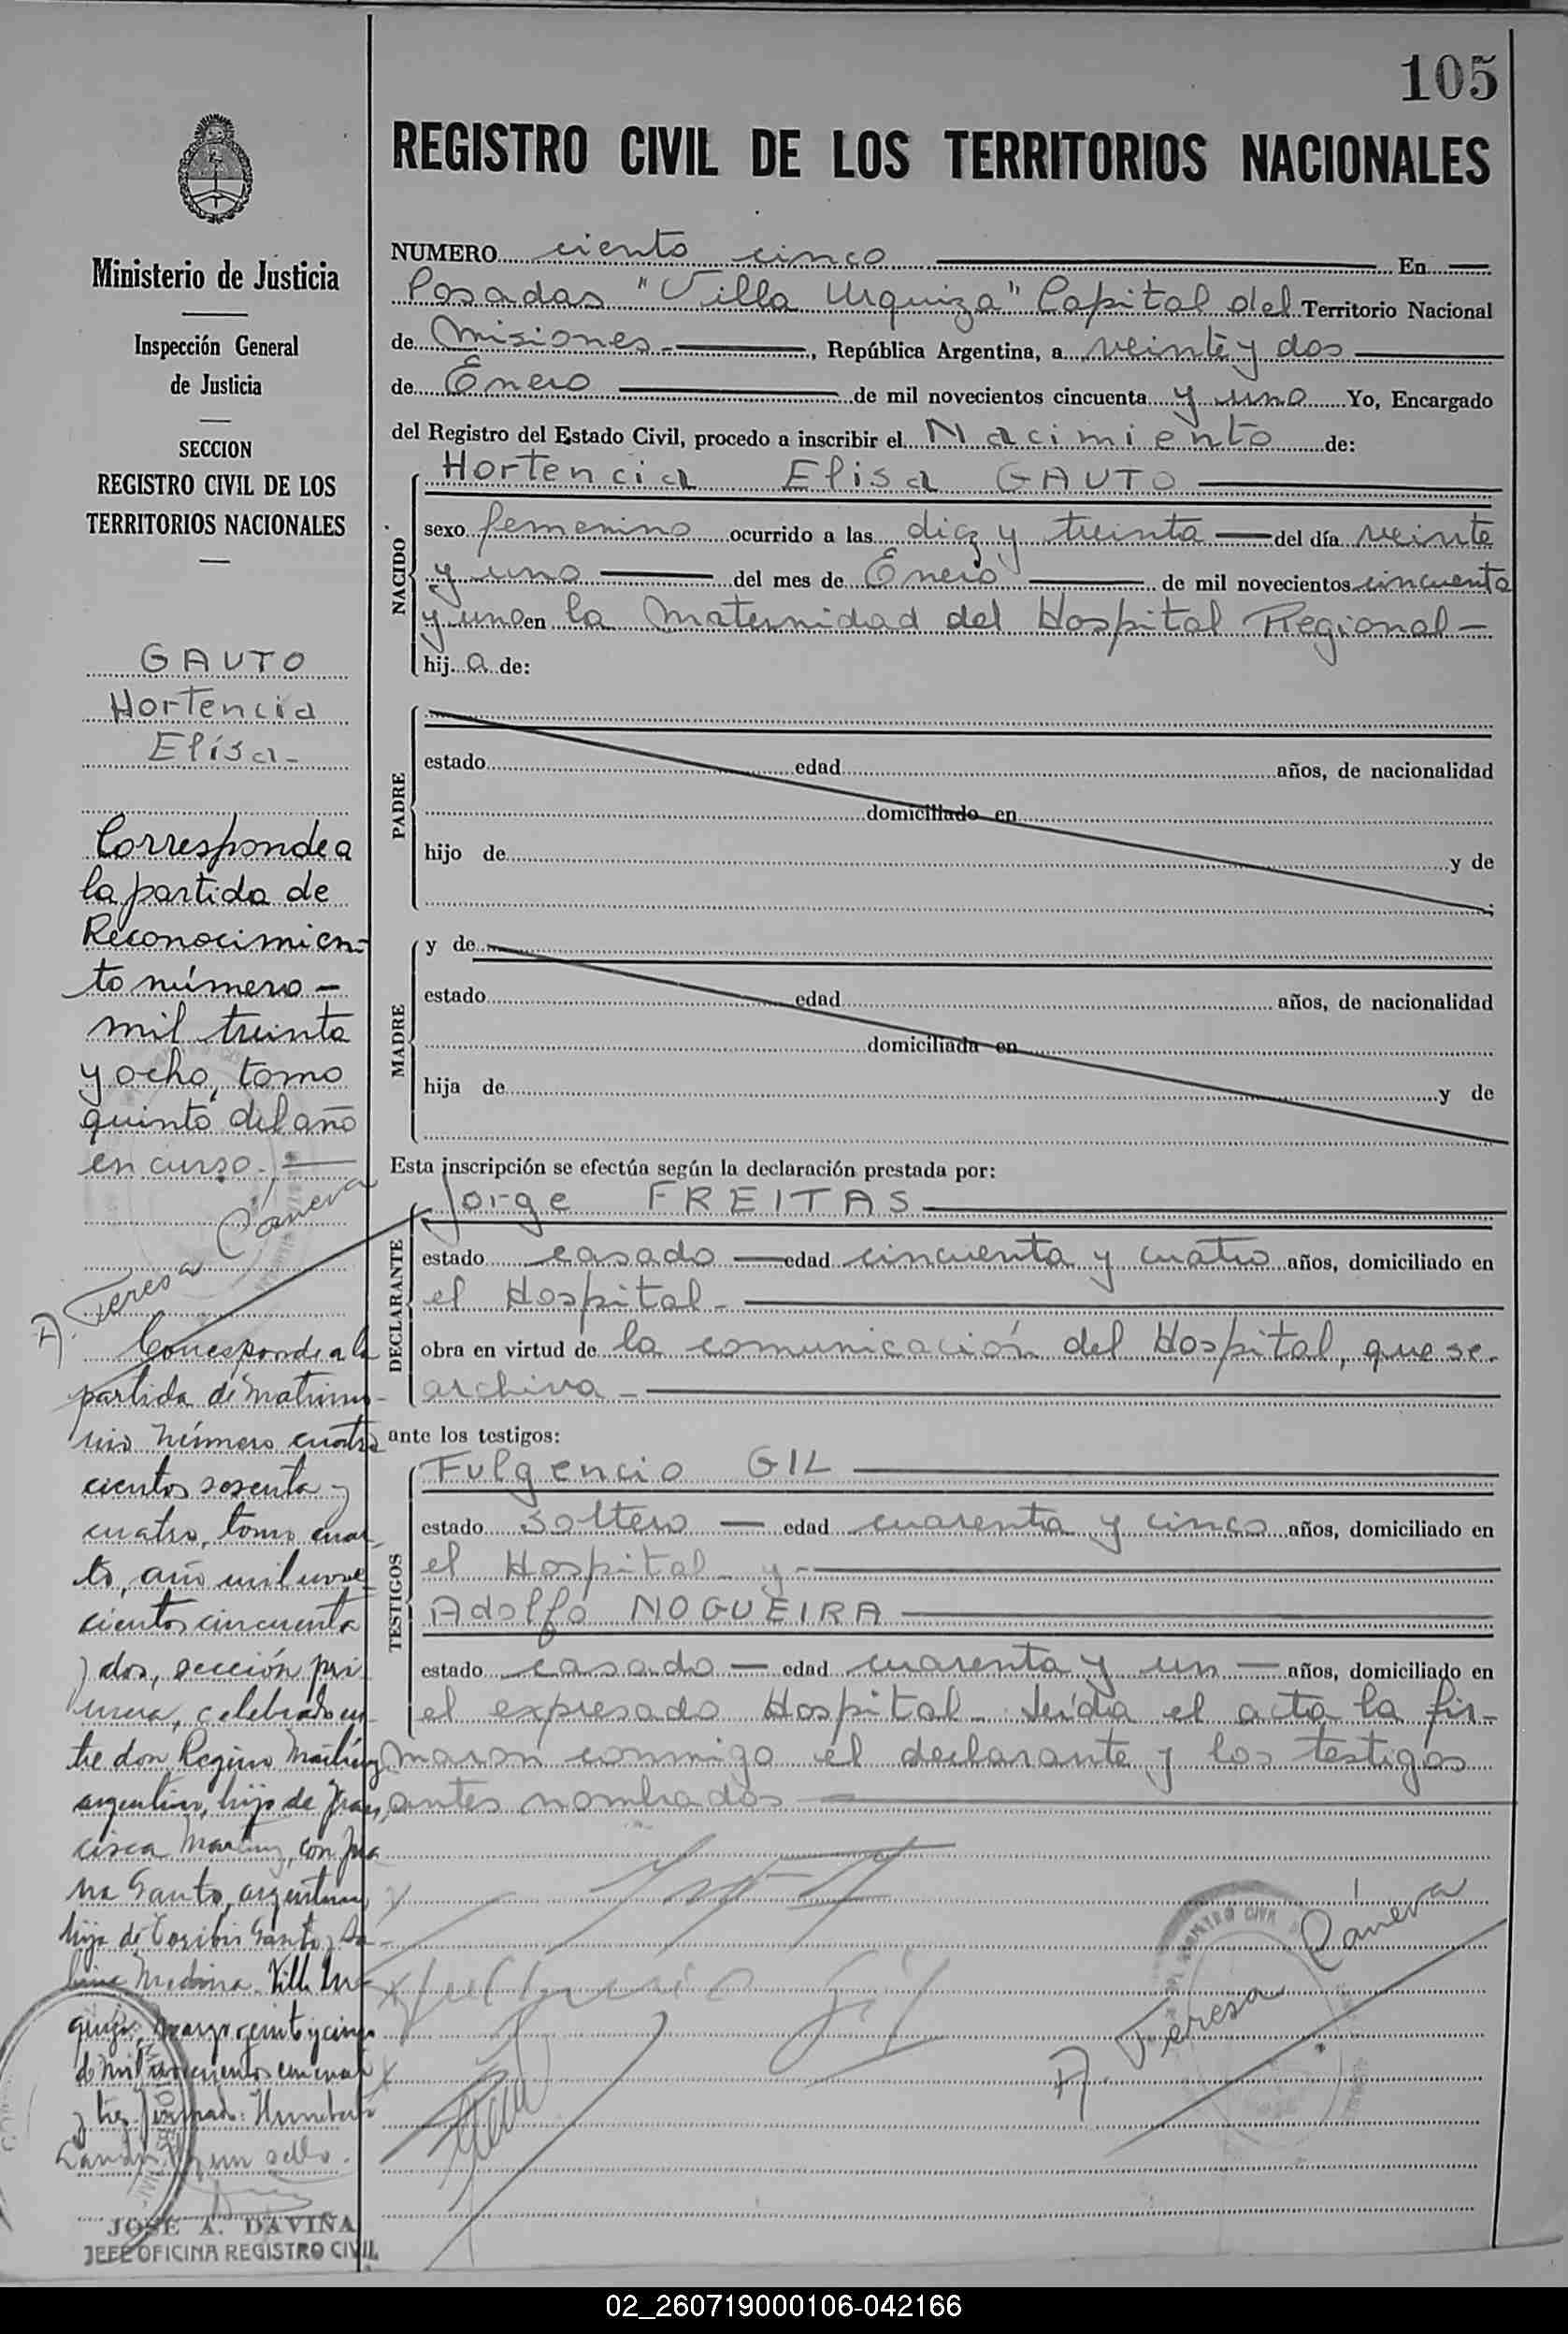 105
REGISTRO CIVIL DE LOS TERRITORIOS NACIONALES
Ministerio de Justicia
Inspección General
de Justicia
SECCION
REGISTRO CIVIL DE LOS
TERRITORIOS NACIONALES
GAUTO
Hortencia
Elisa-
Corresponde a
la partida de
Reconocimien-
to número -
mil treinta
y ocho, tomo
quinto del año
en curso.-
A. Teresa Cáneva
Corresponde a la
partida de matrimo-
nio número cuatro
cientos sesenta y
cuatro, tomo cuar-
to, año mil nove-
cientos cincuenta
y dos, sección pri-
mera, celebrado en-
tre don Regino Martínez
argentino, hijo de Fran-
cisca Martínez, con Jua-
na Gauto, argentina,
hija de Toribio Gauto y Sa-
bina Medina. Villa Ur-
quiza, marzo veinticinco
de mil novecientos cincuenta
y tres. firmado: Humberto
y un sello.
JOSÉ A. DAVIÑA
JEFE OFICINA REGISTRO CIVIL
NUMERO ciento cinco En
Posadas "Villa Urquiza" Capital del Territorio Nacional
de Misiones.-, República Argentina, a veinte y dos
de Enero de mil novecientos cincuenta y uno Yo, Encargado
del Registro del Estado Civil, procedo a inscribir el Nacimiento de:
NACIDO
Hortencia Elisa GAUTO
sexo femenino ocurrido a las diez y treinta del día veinte
y uno del mes de Enero de mil novecientos cincuenta
y uno en la Maternidad del Hospital Regional-
hij a de:
PADRE
estado edad años, de nacionalidad
domiciliado en
hijo de y de
MADRE
y de
estado edad años, de nacionalidad
domiciliada en
hija de y de
Esta inscripción se efectúa según la declaración prestada por:
DECLARANTE
Jorge FREITAS
estado casado edad cincuenta y cuatro años, domiciliado en
el Hospital-
obra en virtud de la comunicación del Hospital, que se
archiva-
ante los testigos:
TESTIGOS
Fulgencio GIL
estado soltero edad cuarenta y cinco años, domiciliado en
el Hospital- y-
Adolfo NOGUEIRA
estado casado edad cuarenta y un años, domiciliado en
el expresado Hospital- Leída el acta la fir-
maron conmigo el declarante y los testigos
antes nombrados
Fulgencio Gil
A. Teresa Cáneva
02_260719000106-042166